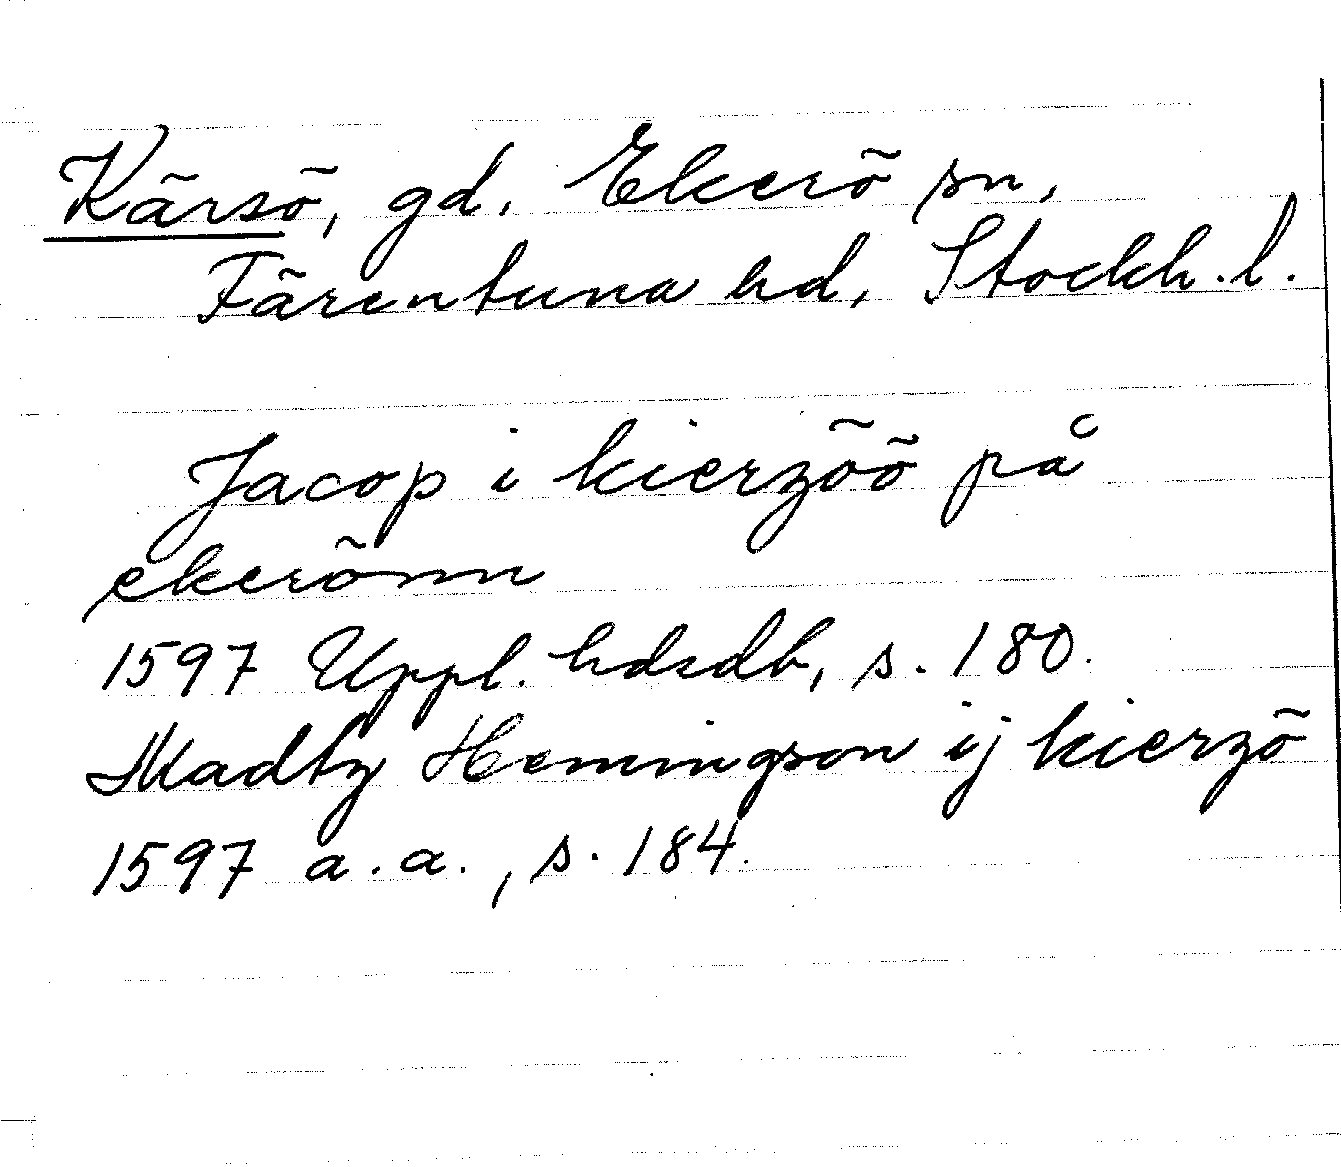 Kärsö, gd. Ekerö sn,
Färentuna hd, Stockh. l.
Jacop i kierzöö på
ekerönn
1597 Uppl. hdsdb, s. 180.
Madtz Hemingson ij kierzö
1597 a.a., s. 184.